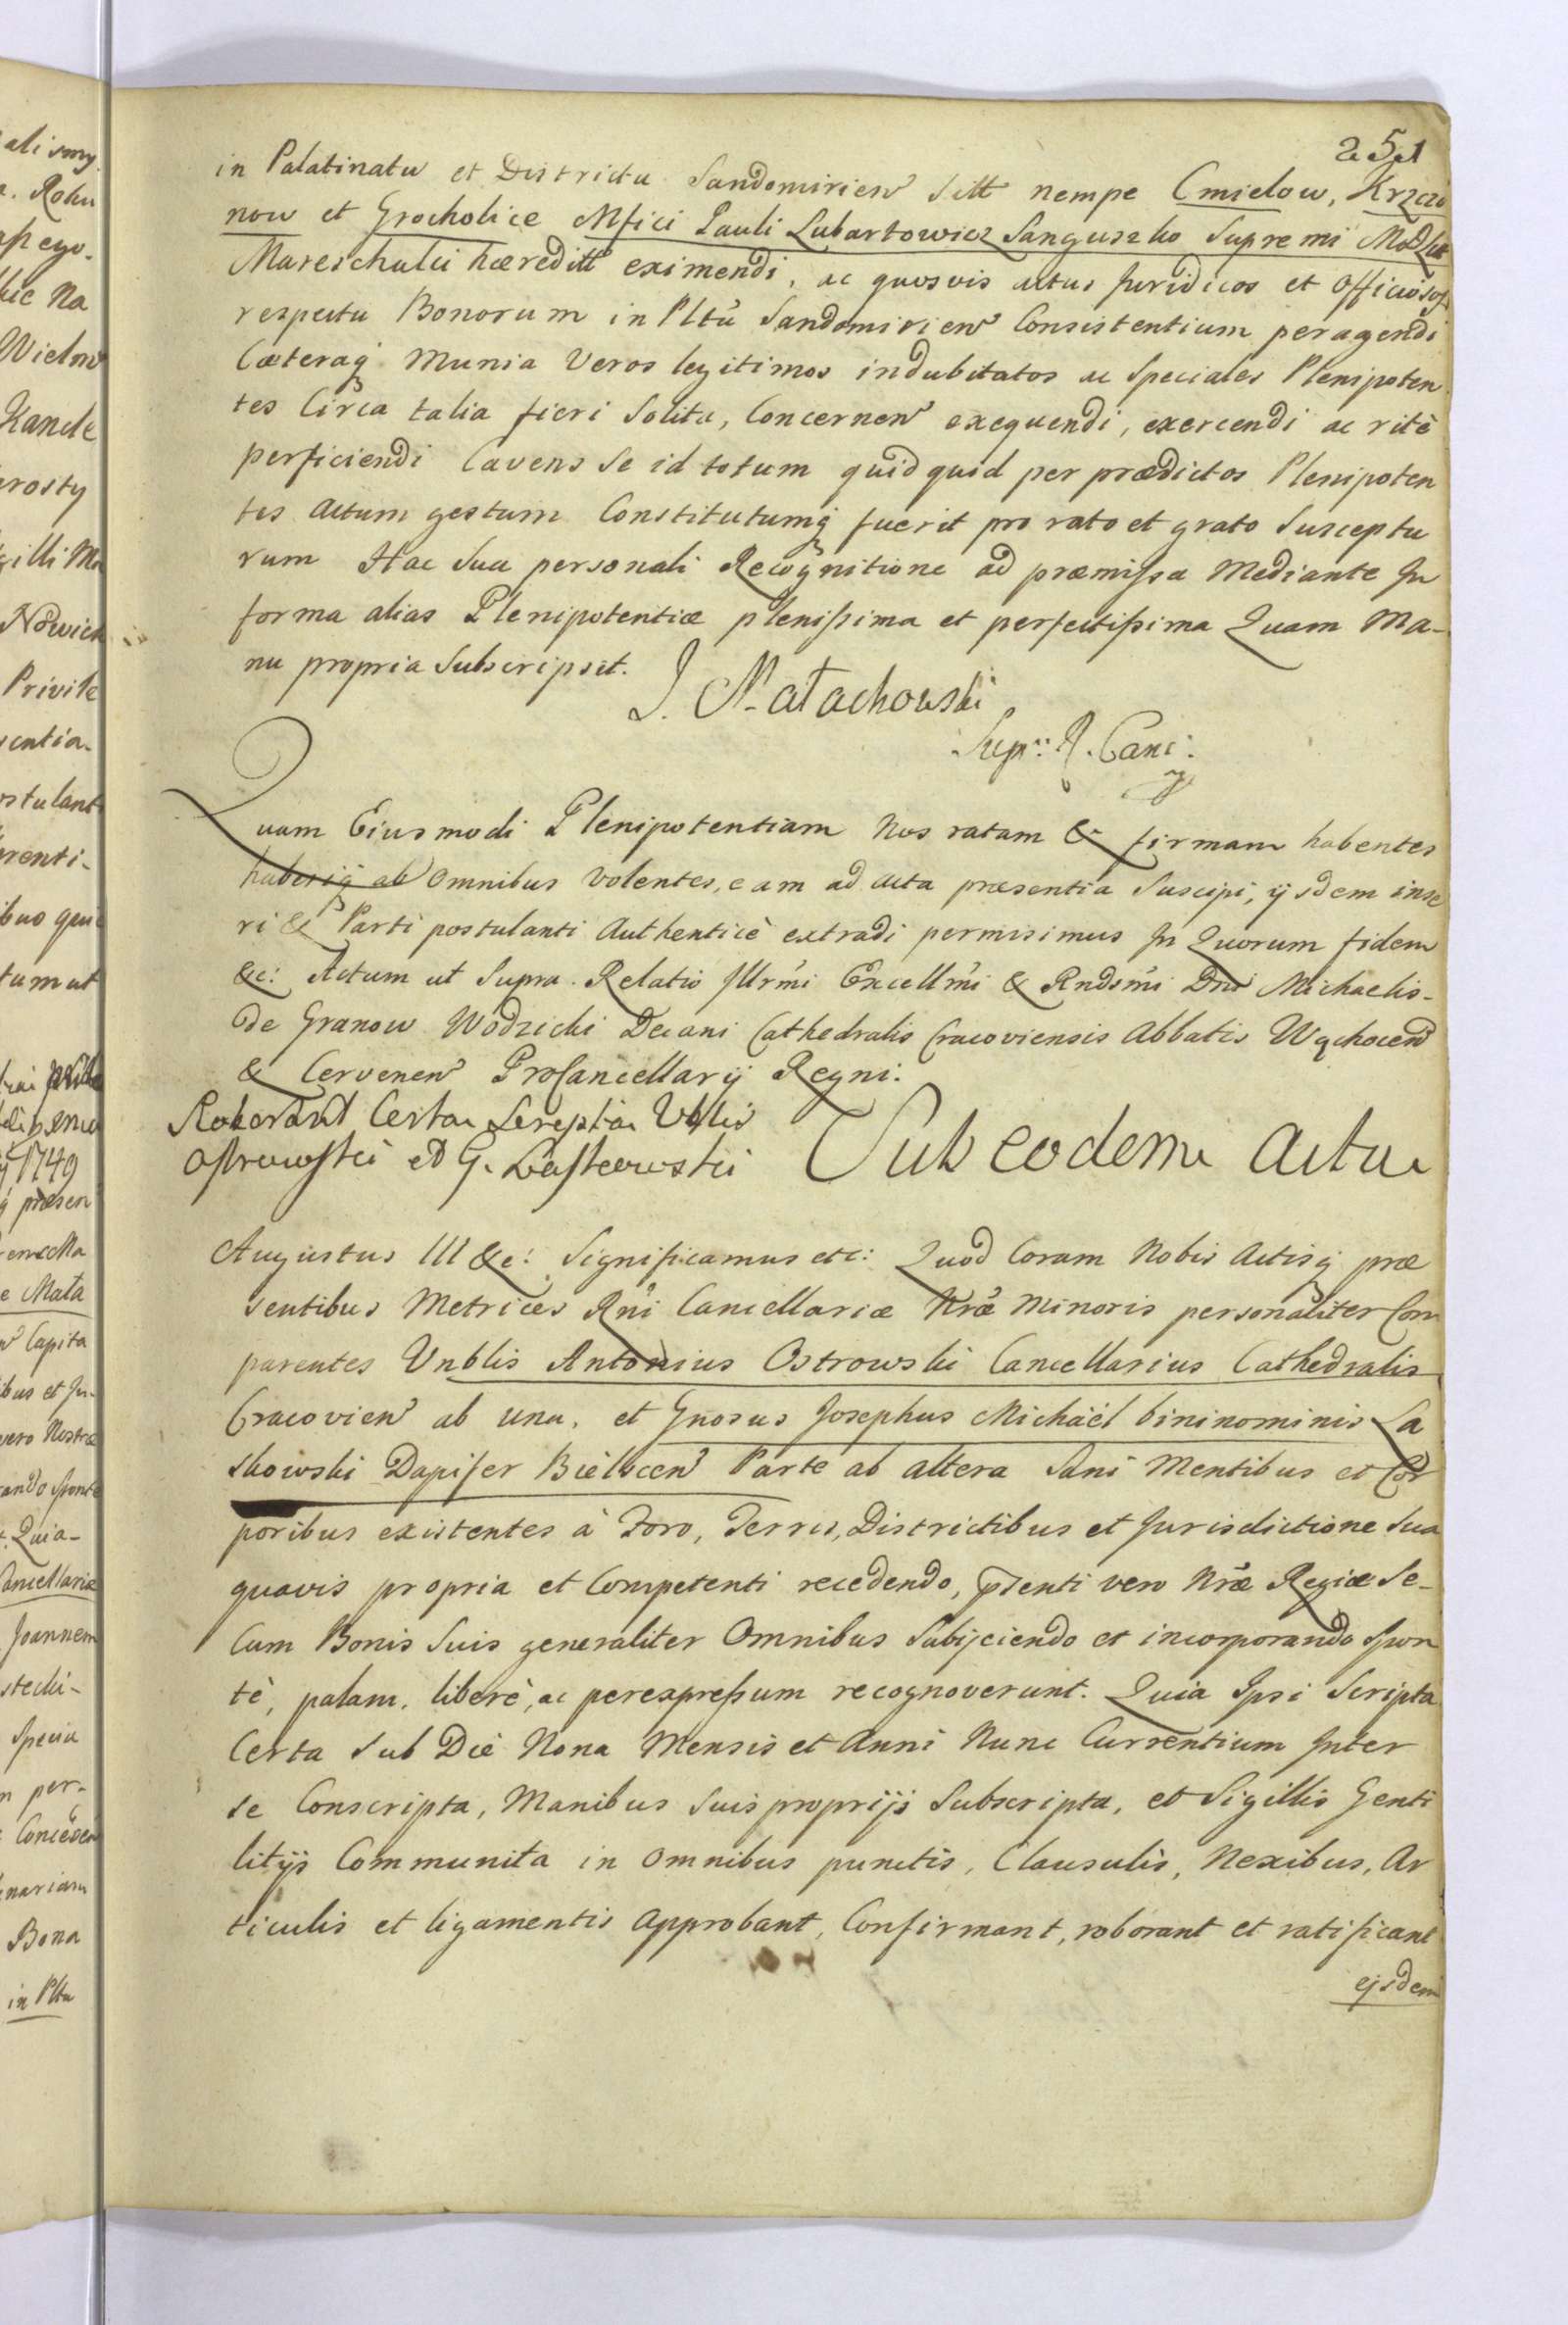 251
in Palatinatu et Districtu Sandomirien sitt nempe Cmielow, Krzczo
now et Grocholice Mfici Pauli Lubartowicz Sanguszko Supremi M D Litt
Mareschalci hæreditt eximendi, ac quosvis actus Juridicos et Officiosos
respectu Bonorum in Pltu Sandomirien Consistentium peragendi
Cæteraq Munia Veros legitimos indubitatos ac Speciales Plenipoten
tes Circa talia fieri Solita, Concernen exequendi, exercendi ac ritè
perficiendi Cavens Se id totum quidquid per prædictos Plenipoten
tes Actum gestum Constitutumq fuerit pro rato et grato Susceptu
rum Hac Sua personali Recognitione ad præmissa Mediante In
forma alias Plenipotentiæ plenissima et perfectissima Quam Ma-
nu propria Subscripsit.
J. Małachowski
Supr: R. Canc:
Quam Eiusmodi Plenipotentiam Nos ratam & firmam habentes
haberiq ab Omnibus Volentes, eam ad Acta præsentia Suscipi, ijsdem inse
ri & Parti postulanti Authenticè extradi permisimus In Quorum fidem
&c: Actum ut Supra. Relatio Illrmi Excellmi & Rndsmi Dni Michaelis-
de Granow Wodzicki Decani Cathedralis Cracoviensis Abbatis Wąchocen
& Cervenen ProCancellarij Regni.
Roborant Certa Scripta Vblis
Ostrowski et G. Laskowski
Sub eodem Actu
Augustus III &c: Significamus etc: Quod Coram Nobis Actisq præ
sentibus Metrices Rni Cancellariæ Nræ Minoris personaliter Com
parentes Vnblis Antonius Ostrowski Cancellarius Cathedralis
Cracovien ab una, et Gnosus Josephus Michaël binominis La
skowski Dapifer Bielscen Parte ab altera Sani Mentibus et Cor
poribus existentes à Foro, Terris, Districtibus et Jurisdictione Sua
quavis propria et Competenti recedendo, pñsenti vero Nræ Regiæ Se-
Cum Bonis Suis generaliter Omnibus Subijciendo et incorporando Spon
tè, palam, liberè, ac perexpressum recognoverunt. Quia Ipsi Scripta
Certa Sub Diè Nona Mensis et Anni Nunc Currentium Inter
se Conscripta, Manibus Suis proprijs Subscripta, et Sigillis Genti
litijs Communita in Omnibus punctis, Clausulis, Nexibus, Ar
ticulis et ligamentis Approbant, Confirmant, roborant et ratificant
ejsdem